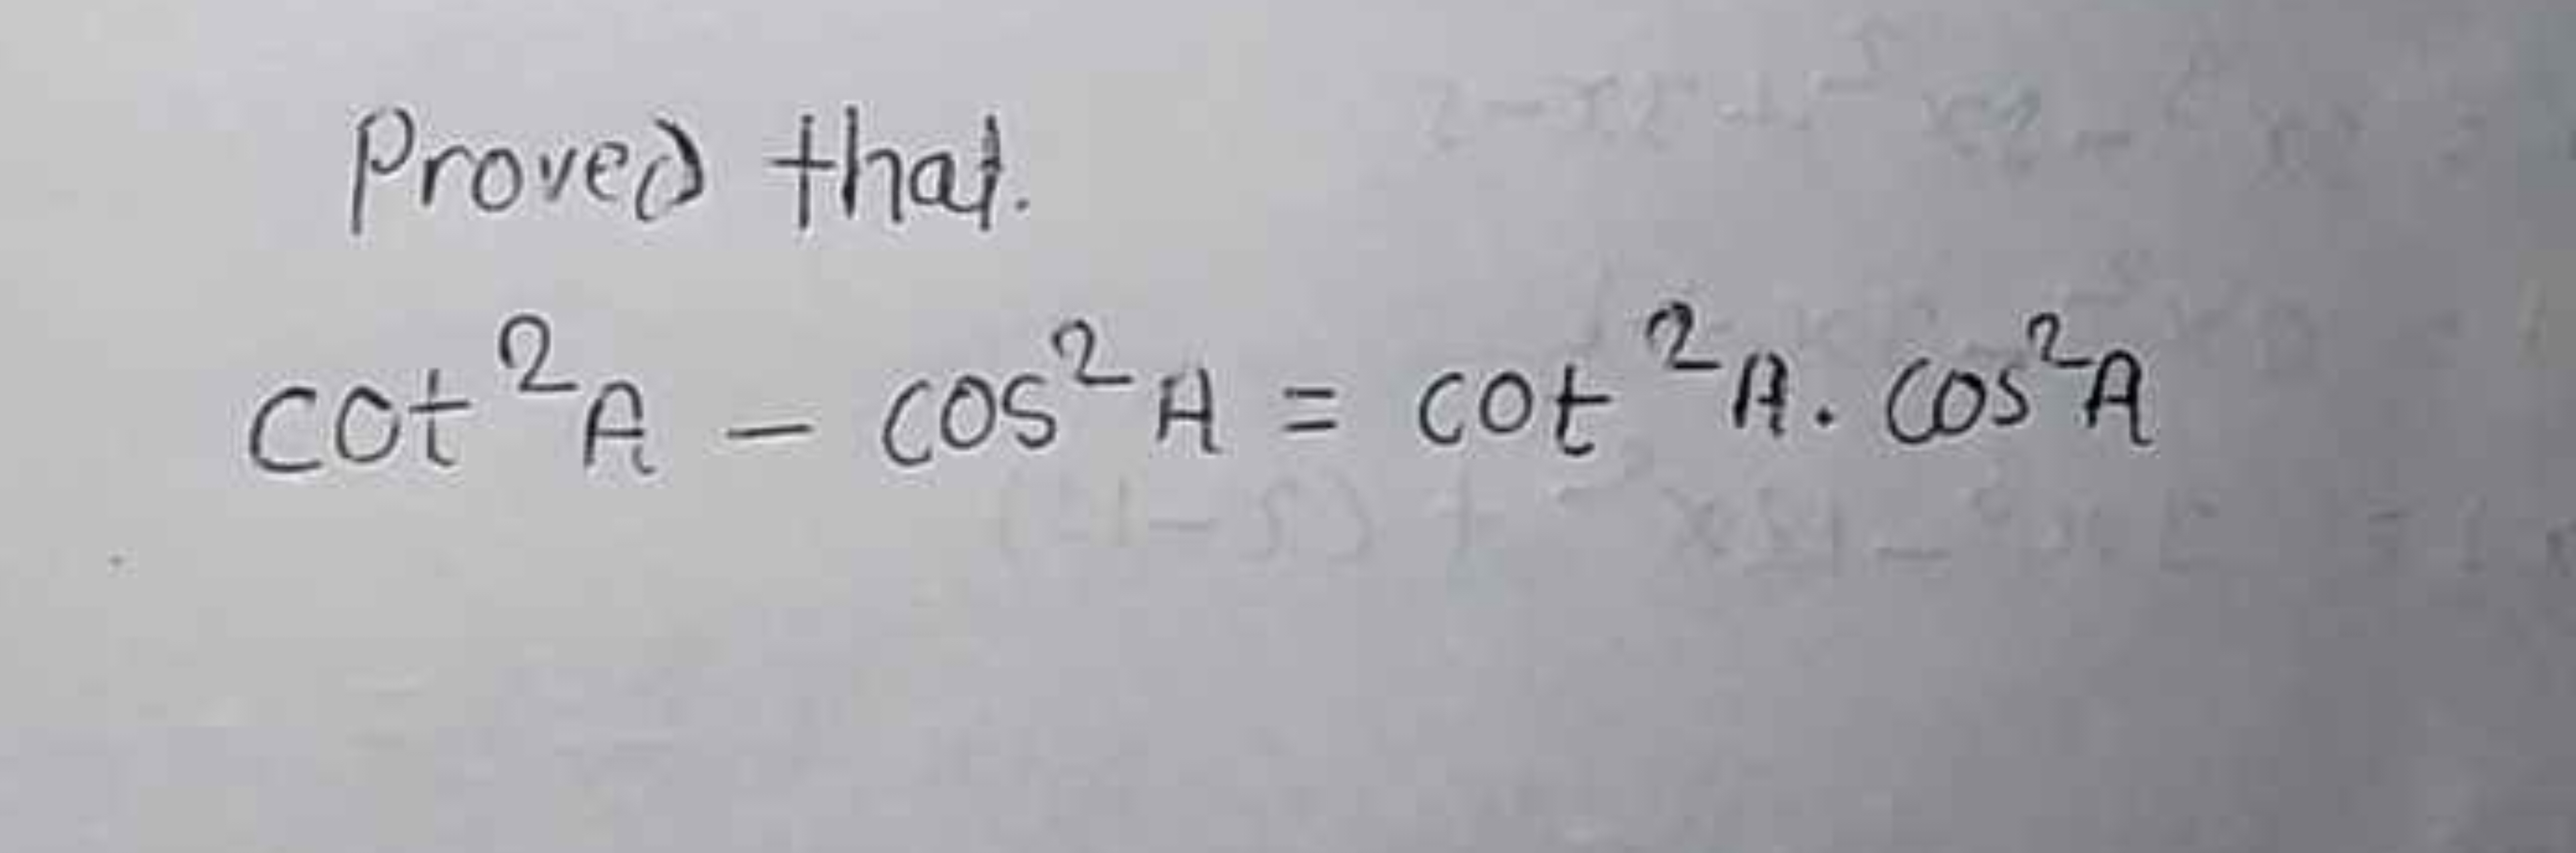 Proved that.
cot²A - cos²A = cot²A. cos²A